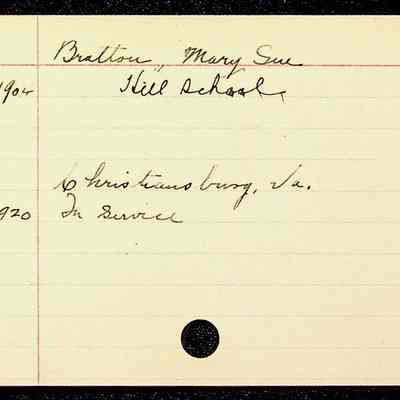 Bratton, Mary Sue
1904 Hill School.
Christiansburg, Va.
920 In Service